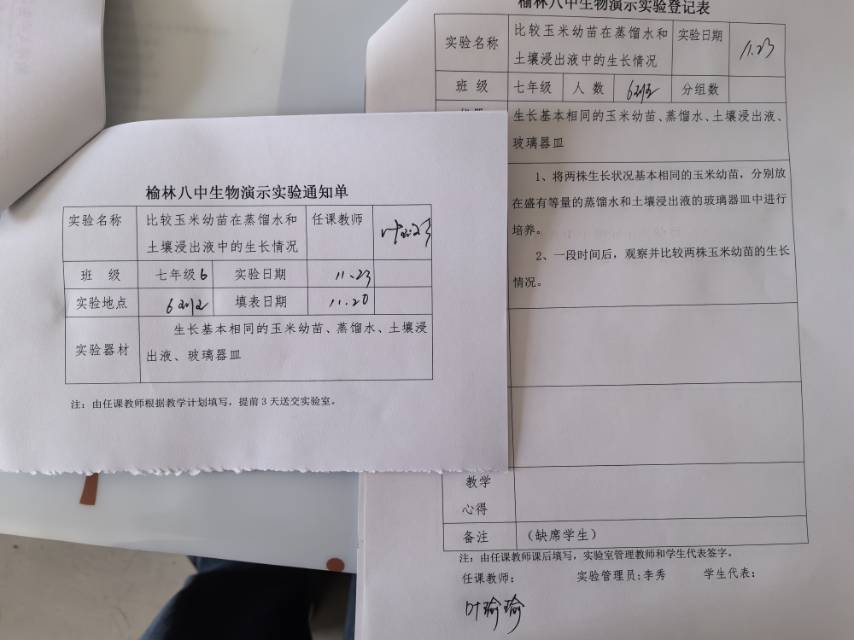 榆林八中生物演示实验通知单
实验名称 比较玉米幼苗在蒸馏水和 任课教师
土壤浸出液中的生长情况
班 级 七年级6 实验日期 11.23
实验地点 填表日期 11.20
生长基本相同的玉米幼苗、蒸馏水、土壤浸
实验器材 出液、玻璃器皿
注：由任课教师根据教学计划填写，提前3天送交实验室。
榆林八中生物演示实验登记表
实验名称 比较玉米幼苗在蒸馏水和 实验日期 11.23
土壤浸出液中的生长情况
班 级 七年级 人 数 分组数
生长基本相同的玉米幼苗、蒸馏水、土壤浸出液、
玻璃器皿
1、将两株生长状况基本相同的玉米幼苗，分别放
在盛有等量的蒸馏水和土壤浸出液的玻璃器皿中进行
培养。
2、一段时间后，观察并比较两株玉米幼苗的生长
情况。
教学
心得
备注 （缺席学生）
注：由任课教师课后填写，实验室管理教师和学生代表签字。
任课教师： 实验管理员:李秀 学生代表：
叶瑜瑜